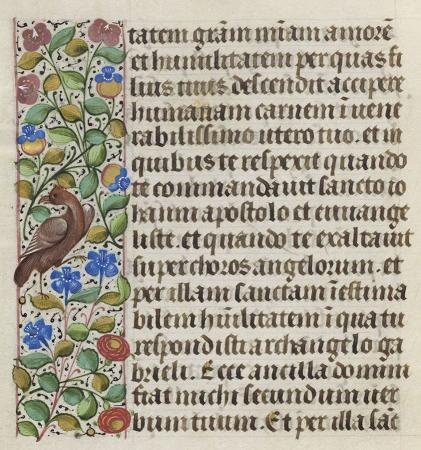 tatem gr̄am mīam amorē
et humilitatem per quas fi
lius tuus descendit accipere
humanam carnem ī vene
rabilissimo utero tuo. et in
quibus te respexit quando
te commandavit sancto io
hanni apostolo et euuange
liste. et quando te exaltauit
super choros angelorum. et
per illam sanctam īestima
bilem hūilitatem ī qua tu
respondisti archangelo ga
brieli. Ecce ancilla domini
fiat michi secundum ver
bum tuum. Et per illa sāc